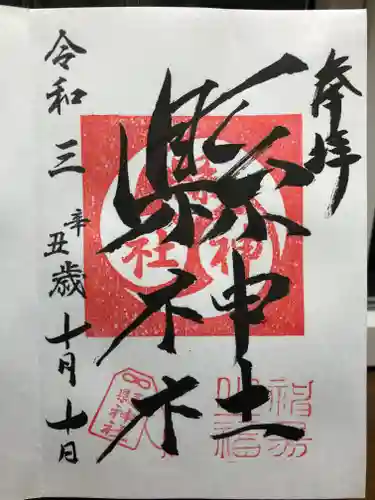 奉拝
縣神社
令和三辛丑歳十月十日
縣神社